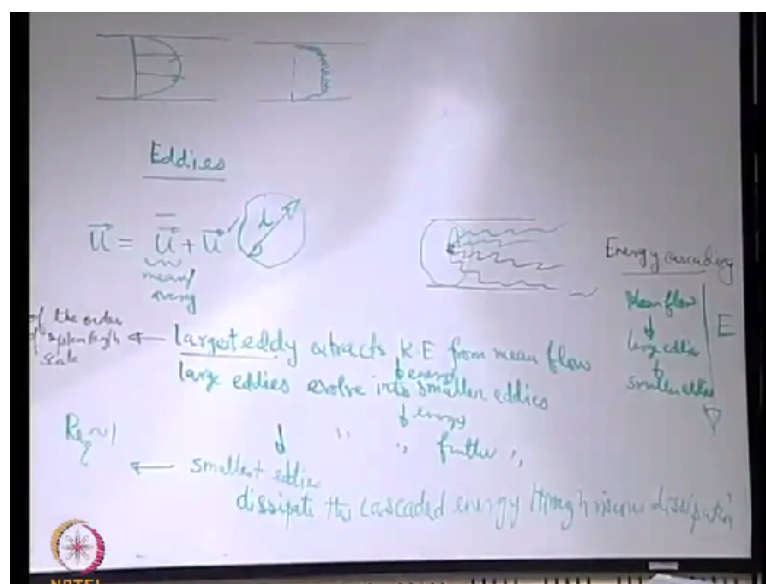 Eddies
u = u + u'
mean/
l
Energy cascading
Mean flow
large eddies
smaller eddies
E
of the order
of system length
scale
← largest eddy extracts K.E from mean flow
energy
large eddies evolve into smaller eddies
energy
" " further "
Re ~ 1
← smallest eddies
dissipate the cascaded energy through viscous dissipation
NPTEL